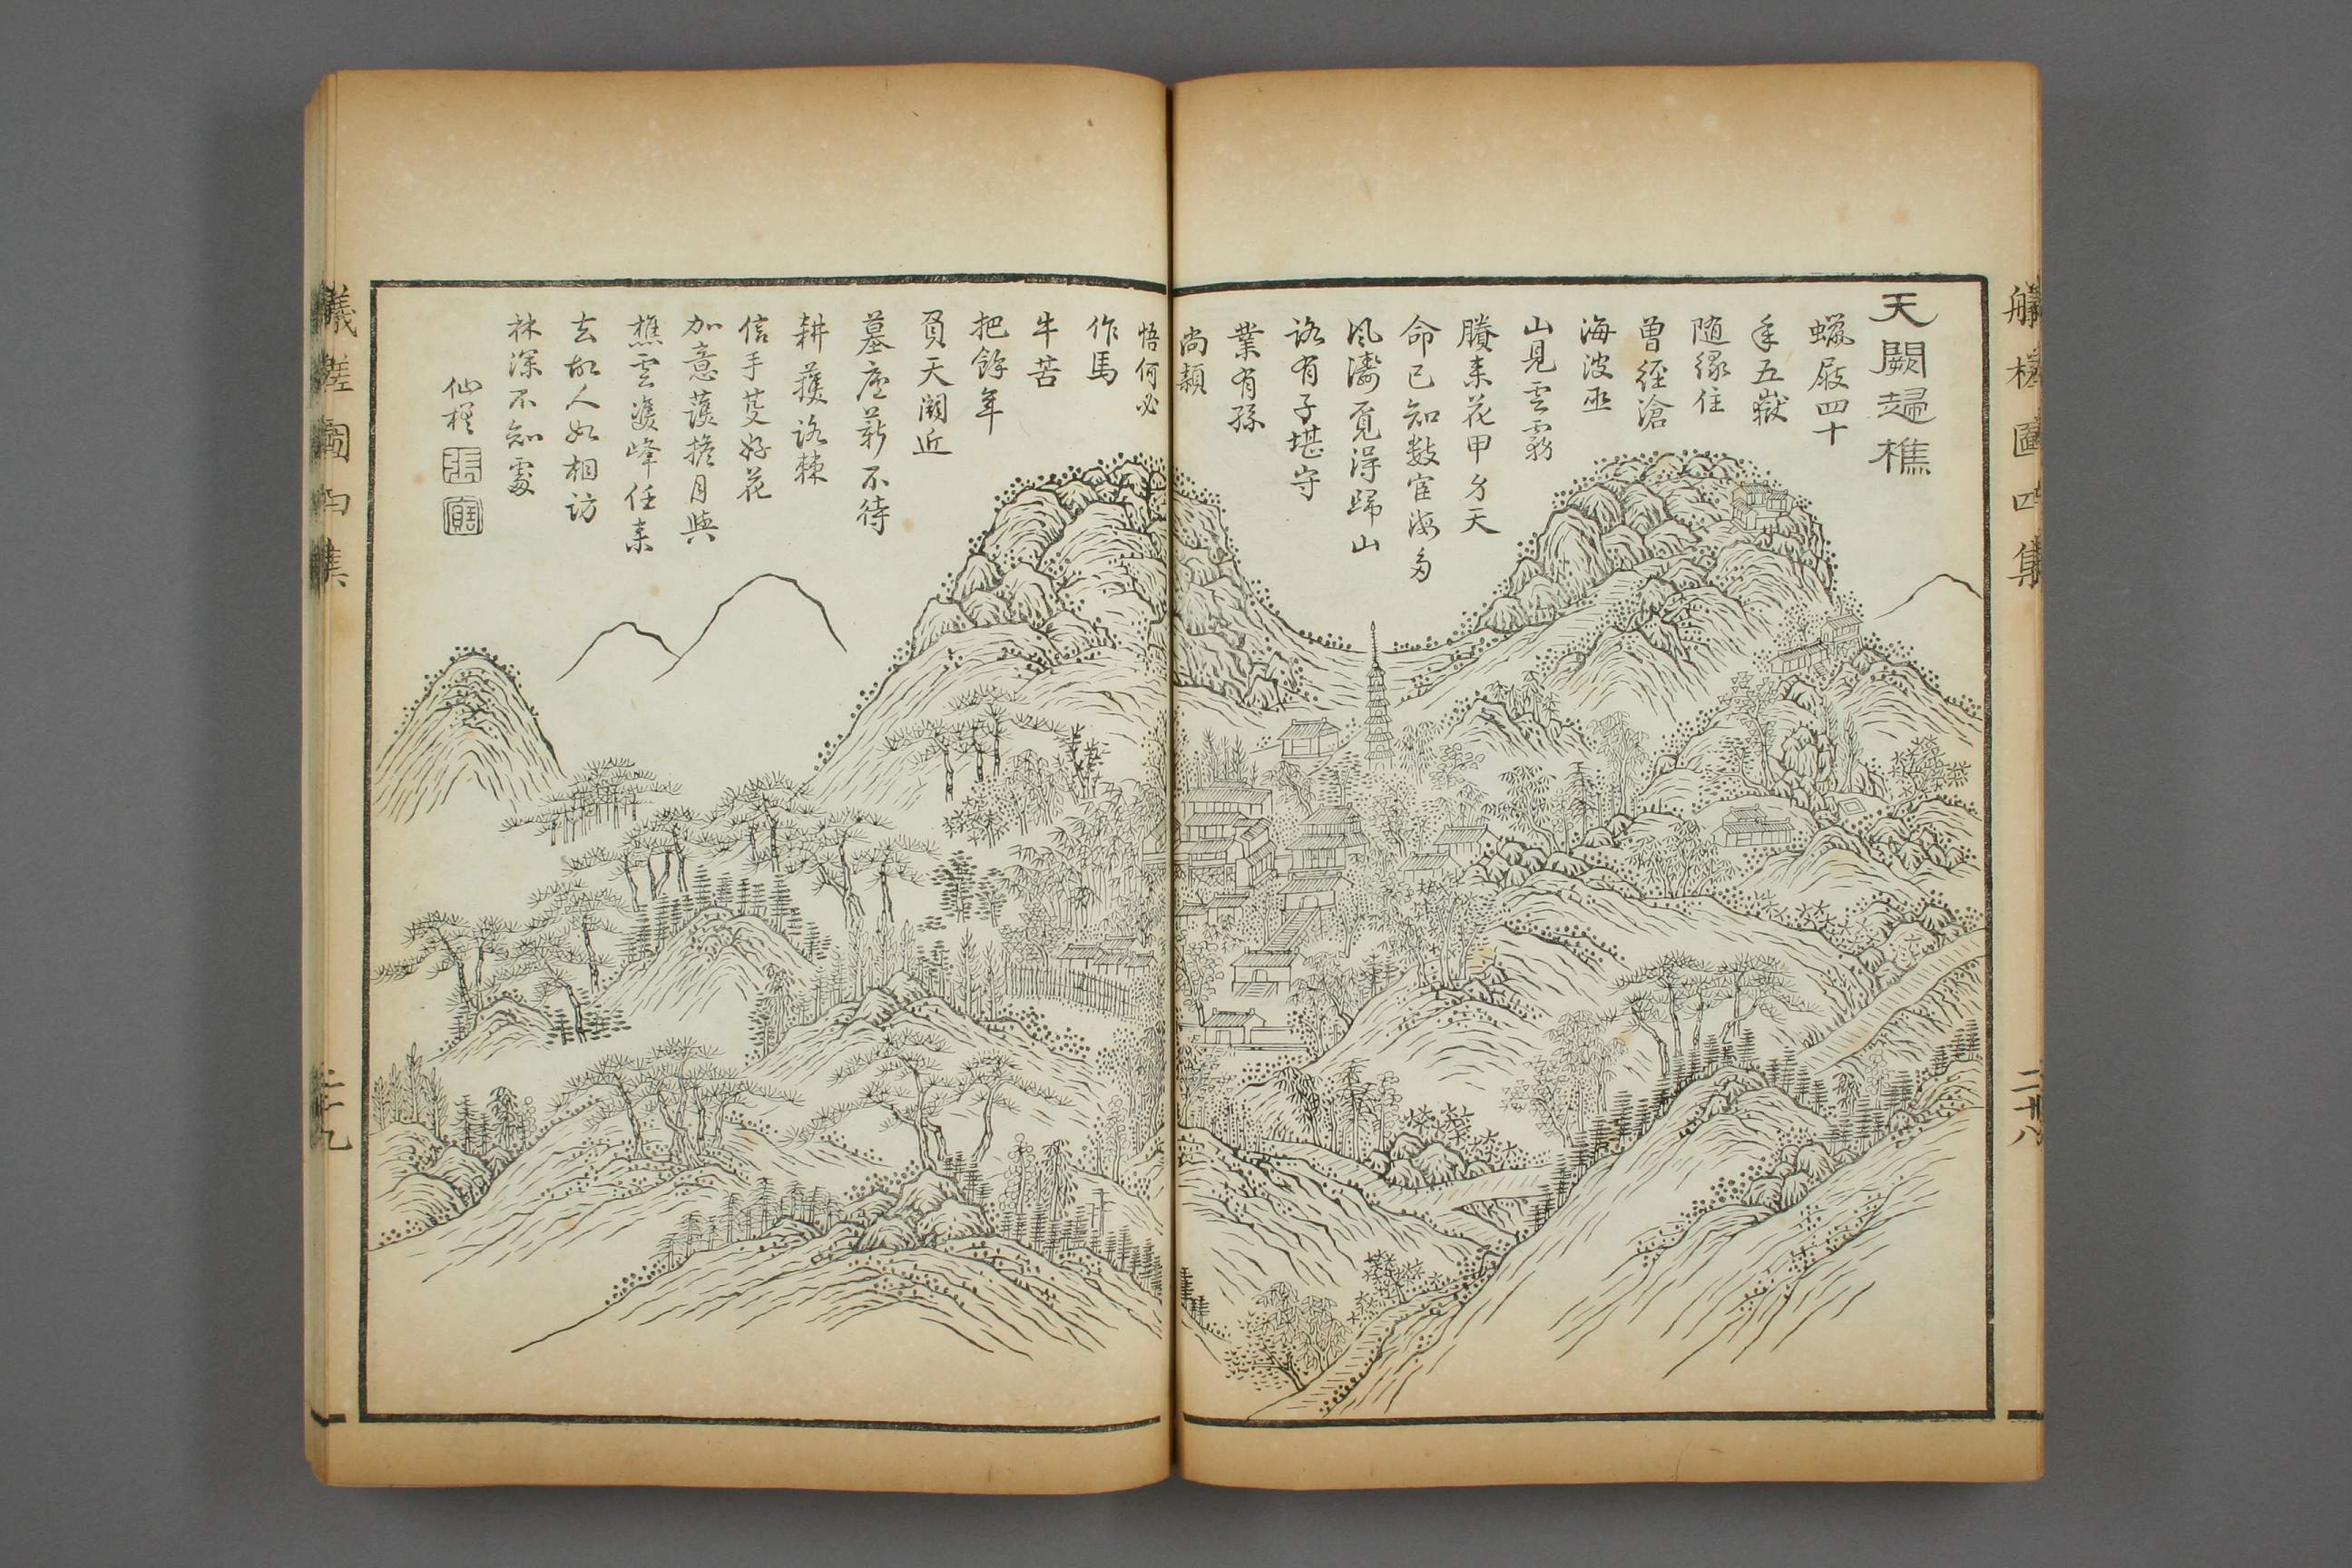 天闕歸樵
蠟屐四十
年五嶽
隨緣住
曾經滄
海波巫
山見雲霧
賸來花甲兮天
命已知數宦海多
風濤覓得歸山
路有子堪守
業有孫
尚穎
悟何必
作馬
牛苦
把餘年
負天闕近
墓廬薪不待
耕穫詠棘
信手芟好花
加意護擔月與
樵雲雙峰任來
去故人如相訪
林深不知處
仙槎
張寶
圖四集
二十八
二十九